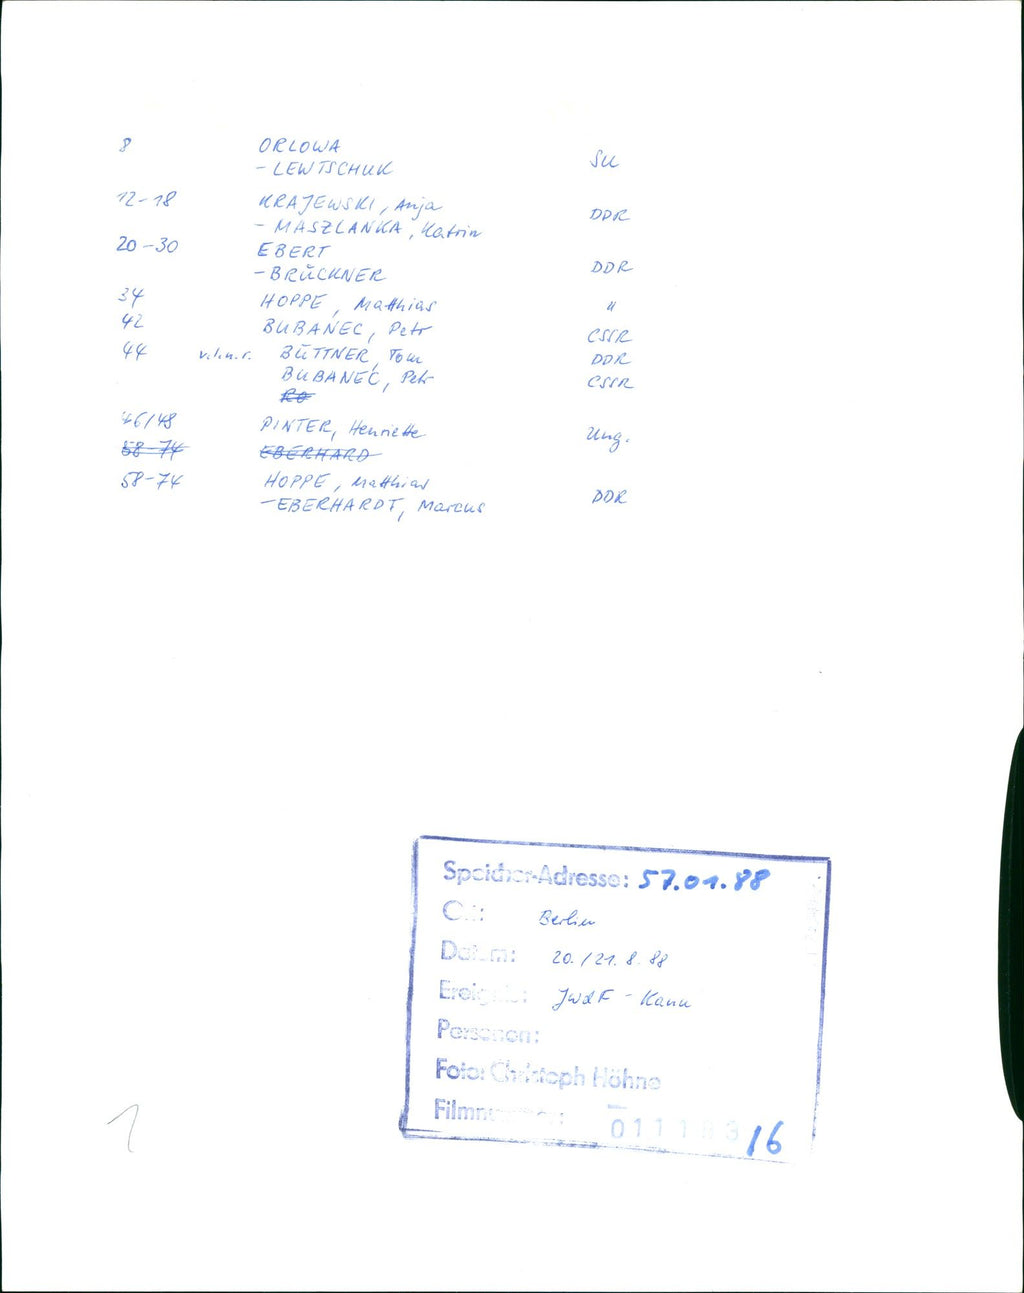 8 ORLOWA
- LEWTSCHUK SU
12-18 KRAJEWSKI, Anja
- MASZLANKA, Katrin DDR
20-30 EBERT
- BRÜCKNER DDR
34 HOPPE, Matthias "
42 BUBANEC, Petr CSSR
44 v.l.n.r. BÜTTNER, Tom DDR
BUBANEC, Petr CSSR
RO
46/48 PINTER, Henriette Ung.
58-74 EBERHARD
58-74 HOPPE, Matthias
- EBERHARDT, Marcus DDR
Speicher-Adresse: 57.01.88
Ort: Berlin
Datum: 20./21.8.88
Ereignis: JWdF - Kanu
Personen:
Foto: Christoph Höhne
Filmnummer: /16
1